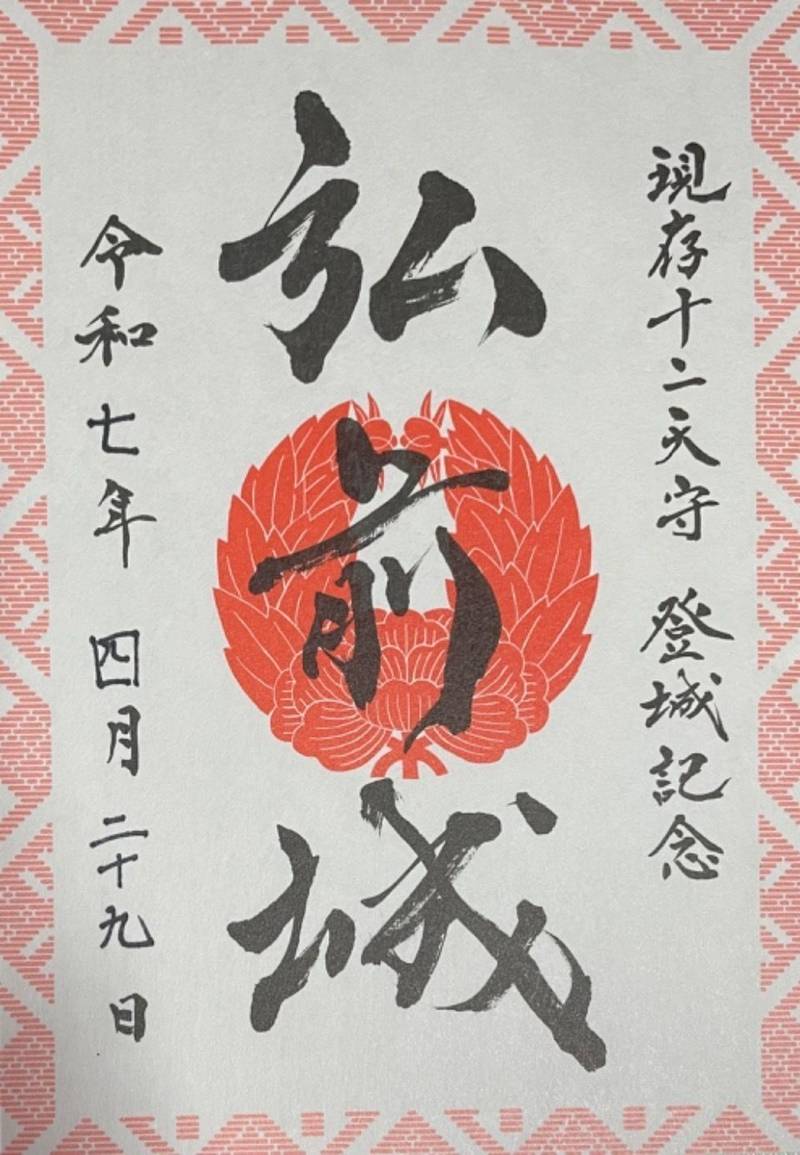 現存十二天守 登城記念
弘前城
令和七年 四月 二十九日